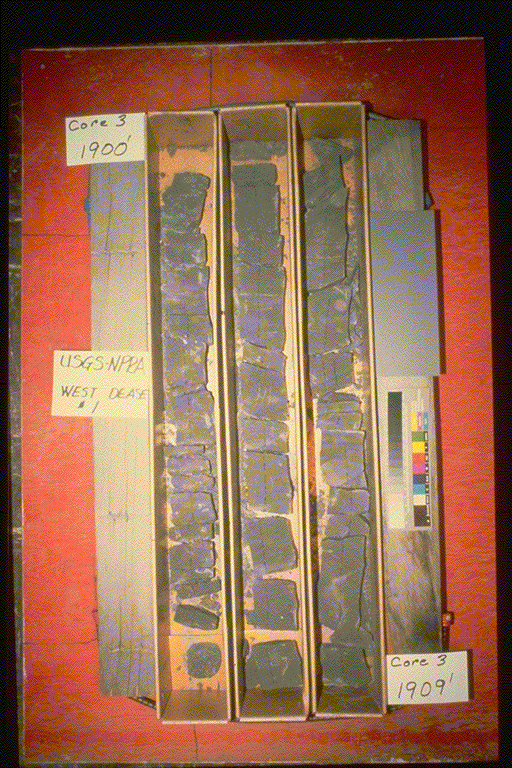 Core 3
1900'
USGS-NPRA
WEST DEASE
# 1
Core 3
1909'